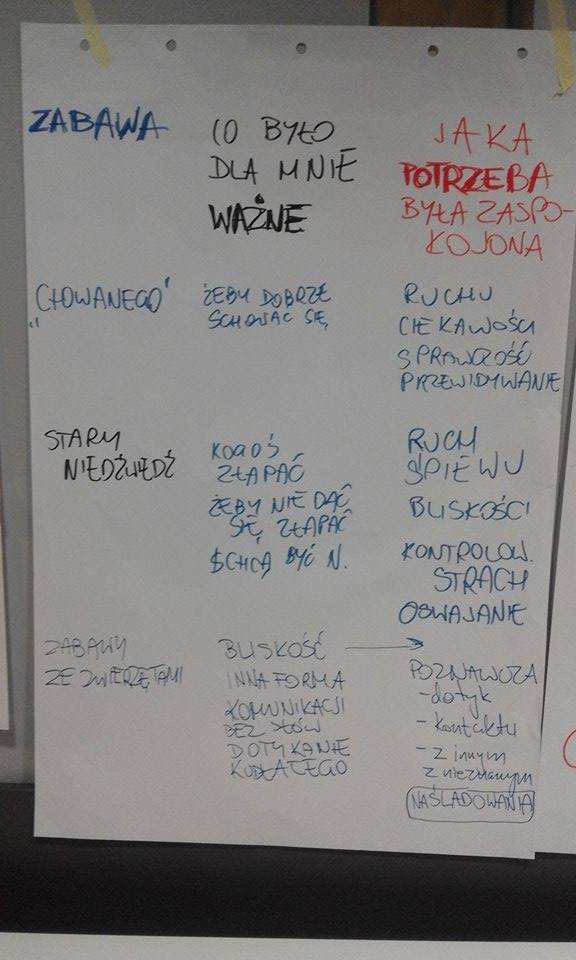 ZABAWA
CO BYŁO
DLA MNIE
WAŻNE
JAKA
POTRZEBA
BYŁA ZASPO-
KOJONA
„CHOWANEGO"
ŻEBY DOBRZE
SCHOWAĆ SIĘ
RUCHU
CIEKAWOŚCI
SPRAWCZOŚĆ
PRZEWIDYWANIE
STARY
NIEDŹWIEDŹ
KOGOŚ
ZŁAPAĆ
ŻEBY NIE DAĆ
SIĘ ZŁAPAĆ
CHCĄ BYĆ N.
RUCH
ŚPIEWU
BLISKOŚCI
KONTROLOW.
STRACH
OSWAJANIE
ZABAWY
ZE ZWIERZĘTAMI
BLISKOŚĆ →
INNA FORMA
KOMUNIKACJI
BEZ SŁÓW
DOTYKANIE
KUDŁATEGO
POZNAWCZA
- dotyk
- kontaktu
- z innym
z nieznanym
NAŚLADOWANIA